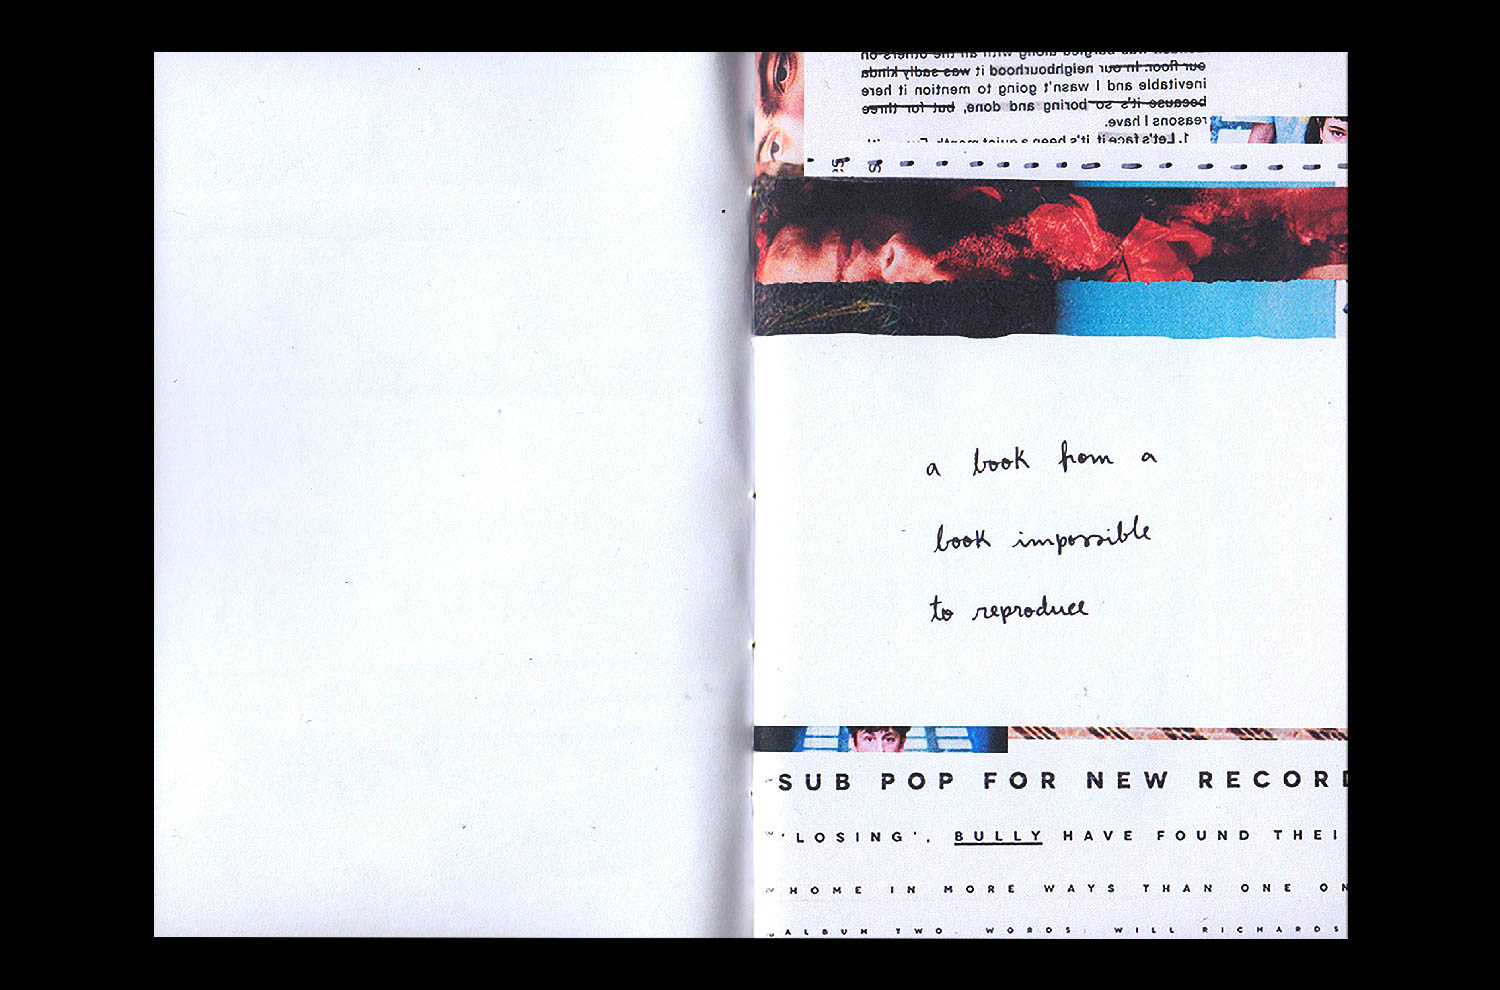 was burgled along with all the others on
our floor. In our neighbourhood it was sadly kinda
inevitable and I wasn't going to mention it here
because it's so boring and done, but for three
reasons I have.
1. Let's face it it's been a quiet month.
a book from a
book impossible
to reproduce
SUB POP FOR NEW RECORD
'LOSING', BULLY HAVE FOUND THEI
HOME IN MORE WAYS THAN ONE ON
ALBUM TWO. WORDS: WILL RICHARDS